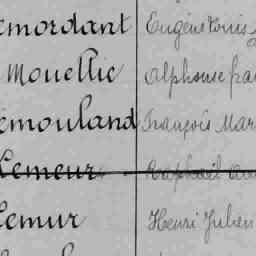 emordant Eugène Louis
Mouellic Alphonse fra
émouland François Mar
Lemeur Raphaël au
Lemur Henri Julien